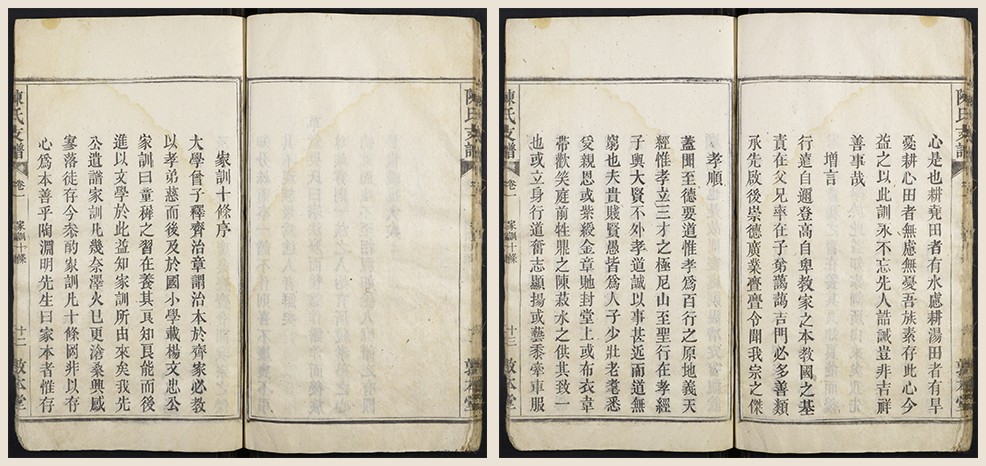 家訓十條序
大學曾子釋齊治章謂治本於齊家必教
以孝弟慈而後及於國小學載楊文忠公
家訓曰童稺之習在養其良知良能而後
進以文學於此益知家訓所由來矣我先
公遺譜家訓凡幾奈澤火已更滄桑興感
寥落徒存今叅酌家訓凡十條罔非以存
心爲本善乎陶淵明先生曰家本者惟存
陳氏支譜
卷一
家訓十條
十二
敦本堂
心是也耕堯田者有水慮耕湯田者有旱
憂耕心田者無慮無憂吾族素存此心今
益之以此訓永不忘先人誥誡豈非吉祥
善事哉
增言
行遠自邇登高自卑教家之本教國之基
責在父兄率在子弟藹藹吉門必多善類
承先啟後崇德廣業亹亹令聞我宗之傑
陳氏支譜
孝順
蓋聞至德要道惟孝爲百行之原地義天
經惟孝立三才之極尼山至聖行在孝經
子輿大賢不外孝道誠以事甚近而道無
窮也夫貴賤賢愚皆爲人子少壯老耄悉
受親恩或紫綬金章馳封堂上或布衣韋
帶歡笑庭前牲鼎之陳菽水之供其致一
也或立身行道奮志顯揚或藝黍牽車服
陳氏支譜
卷一
家訓十條
十三
敦本堂